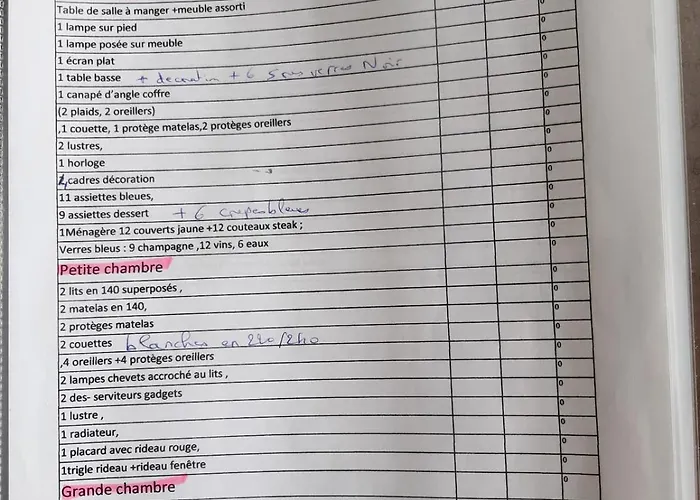 Table de salle à manger +meuble assorti 0
1 lampe sur pied 0
1 lampe posée sur meuble 0
1 écran plat 0
1 table basse + decoration + 6 sous verres Noir 0
1 canapé d'angle coffre 0
(2 plaids, 2 oreillers) 0
,1 couette, 1 protège matelas,2 protèges oreillers 0
2 lustres, 0
1 horloge 0
4 cadres décoration 0
11 assiettes bleues, 0
9 assiettes dessert + 6 bleues 0
1Ménagère 12 couverts jaune +12 couteaux steak ; 0
Verres bleus : 9 champagne ,12 vins, 6 eaux 0
Petite chambre 0
2 lits en 140 superposés , 0
2 matelas en 140, 0
2 protèges matelas 0
2 couettes blanches en 220/240 0
,4 oreillers +4 protèges oreillers 0
2 lampes chevets accroché au lits , 0
2 des- serviteurs gadgets 0
1 lustre , 0
1 radiateur, 0
1 placard avec rideau rouge, 0
1trigle rideau +rideau fenêtre 0
Grande chambre 0